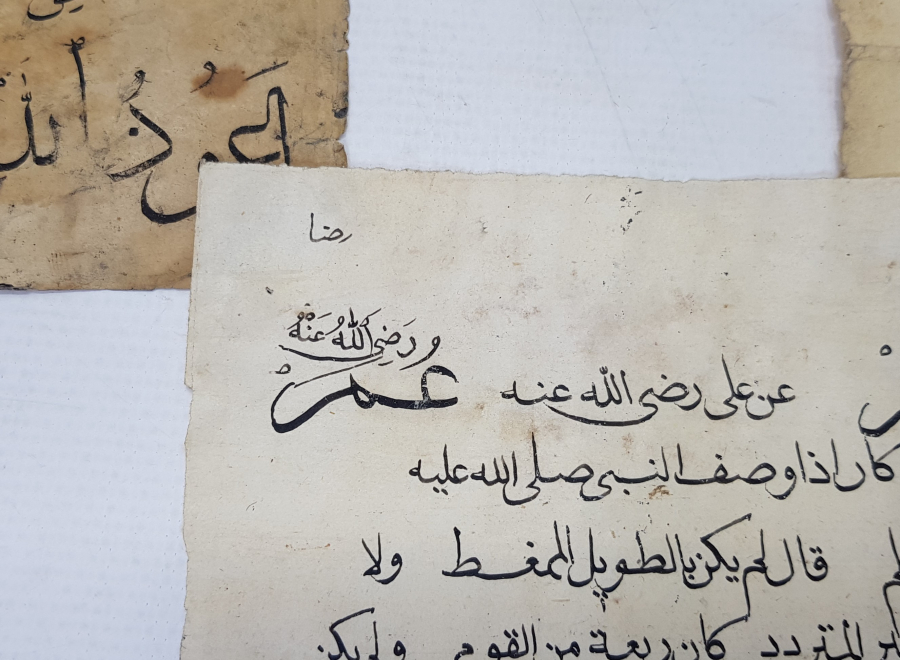 رضا
وَرَضِيَ اللّٰهُ عَنْهُ
عن على رضى الله عنه عمر
كان اذا وصف النبى صلى الله عليه
لم قال لم يكن بالطويل الممغط ولا
المتردد كان ربعة من القوم ولم يكن